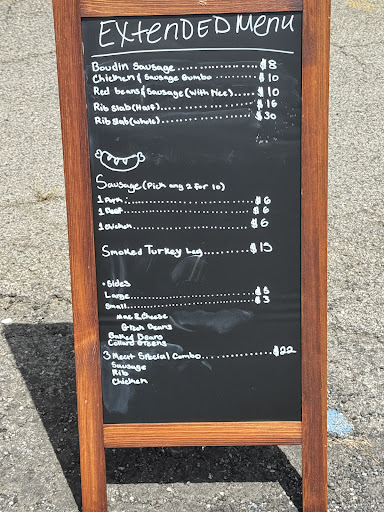 Extended Menu
Boudin Sausage..................$8
Chicken & Sausage Gumbo..........$10
Red beans & Sausage (with Rice).....$10
Rib Slab (Half)....................$16
Rib Slab (whole)...................$30
Sausage (Pick any 2 for 10)
1 Pork :.........................$6
1 Beef...........................$6
1 Chicken........................$6
Smoked Turkey Leg...........$15
• Sides
Large.........................$5
Small.........................$3
Mac & Cheese
Green Beans
Baked Beans
Collard Greens
3 Meat Special Combo..............$22
Sausage
Rib
Chicken